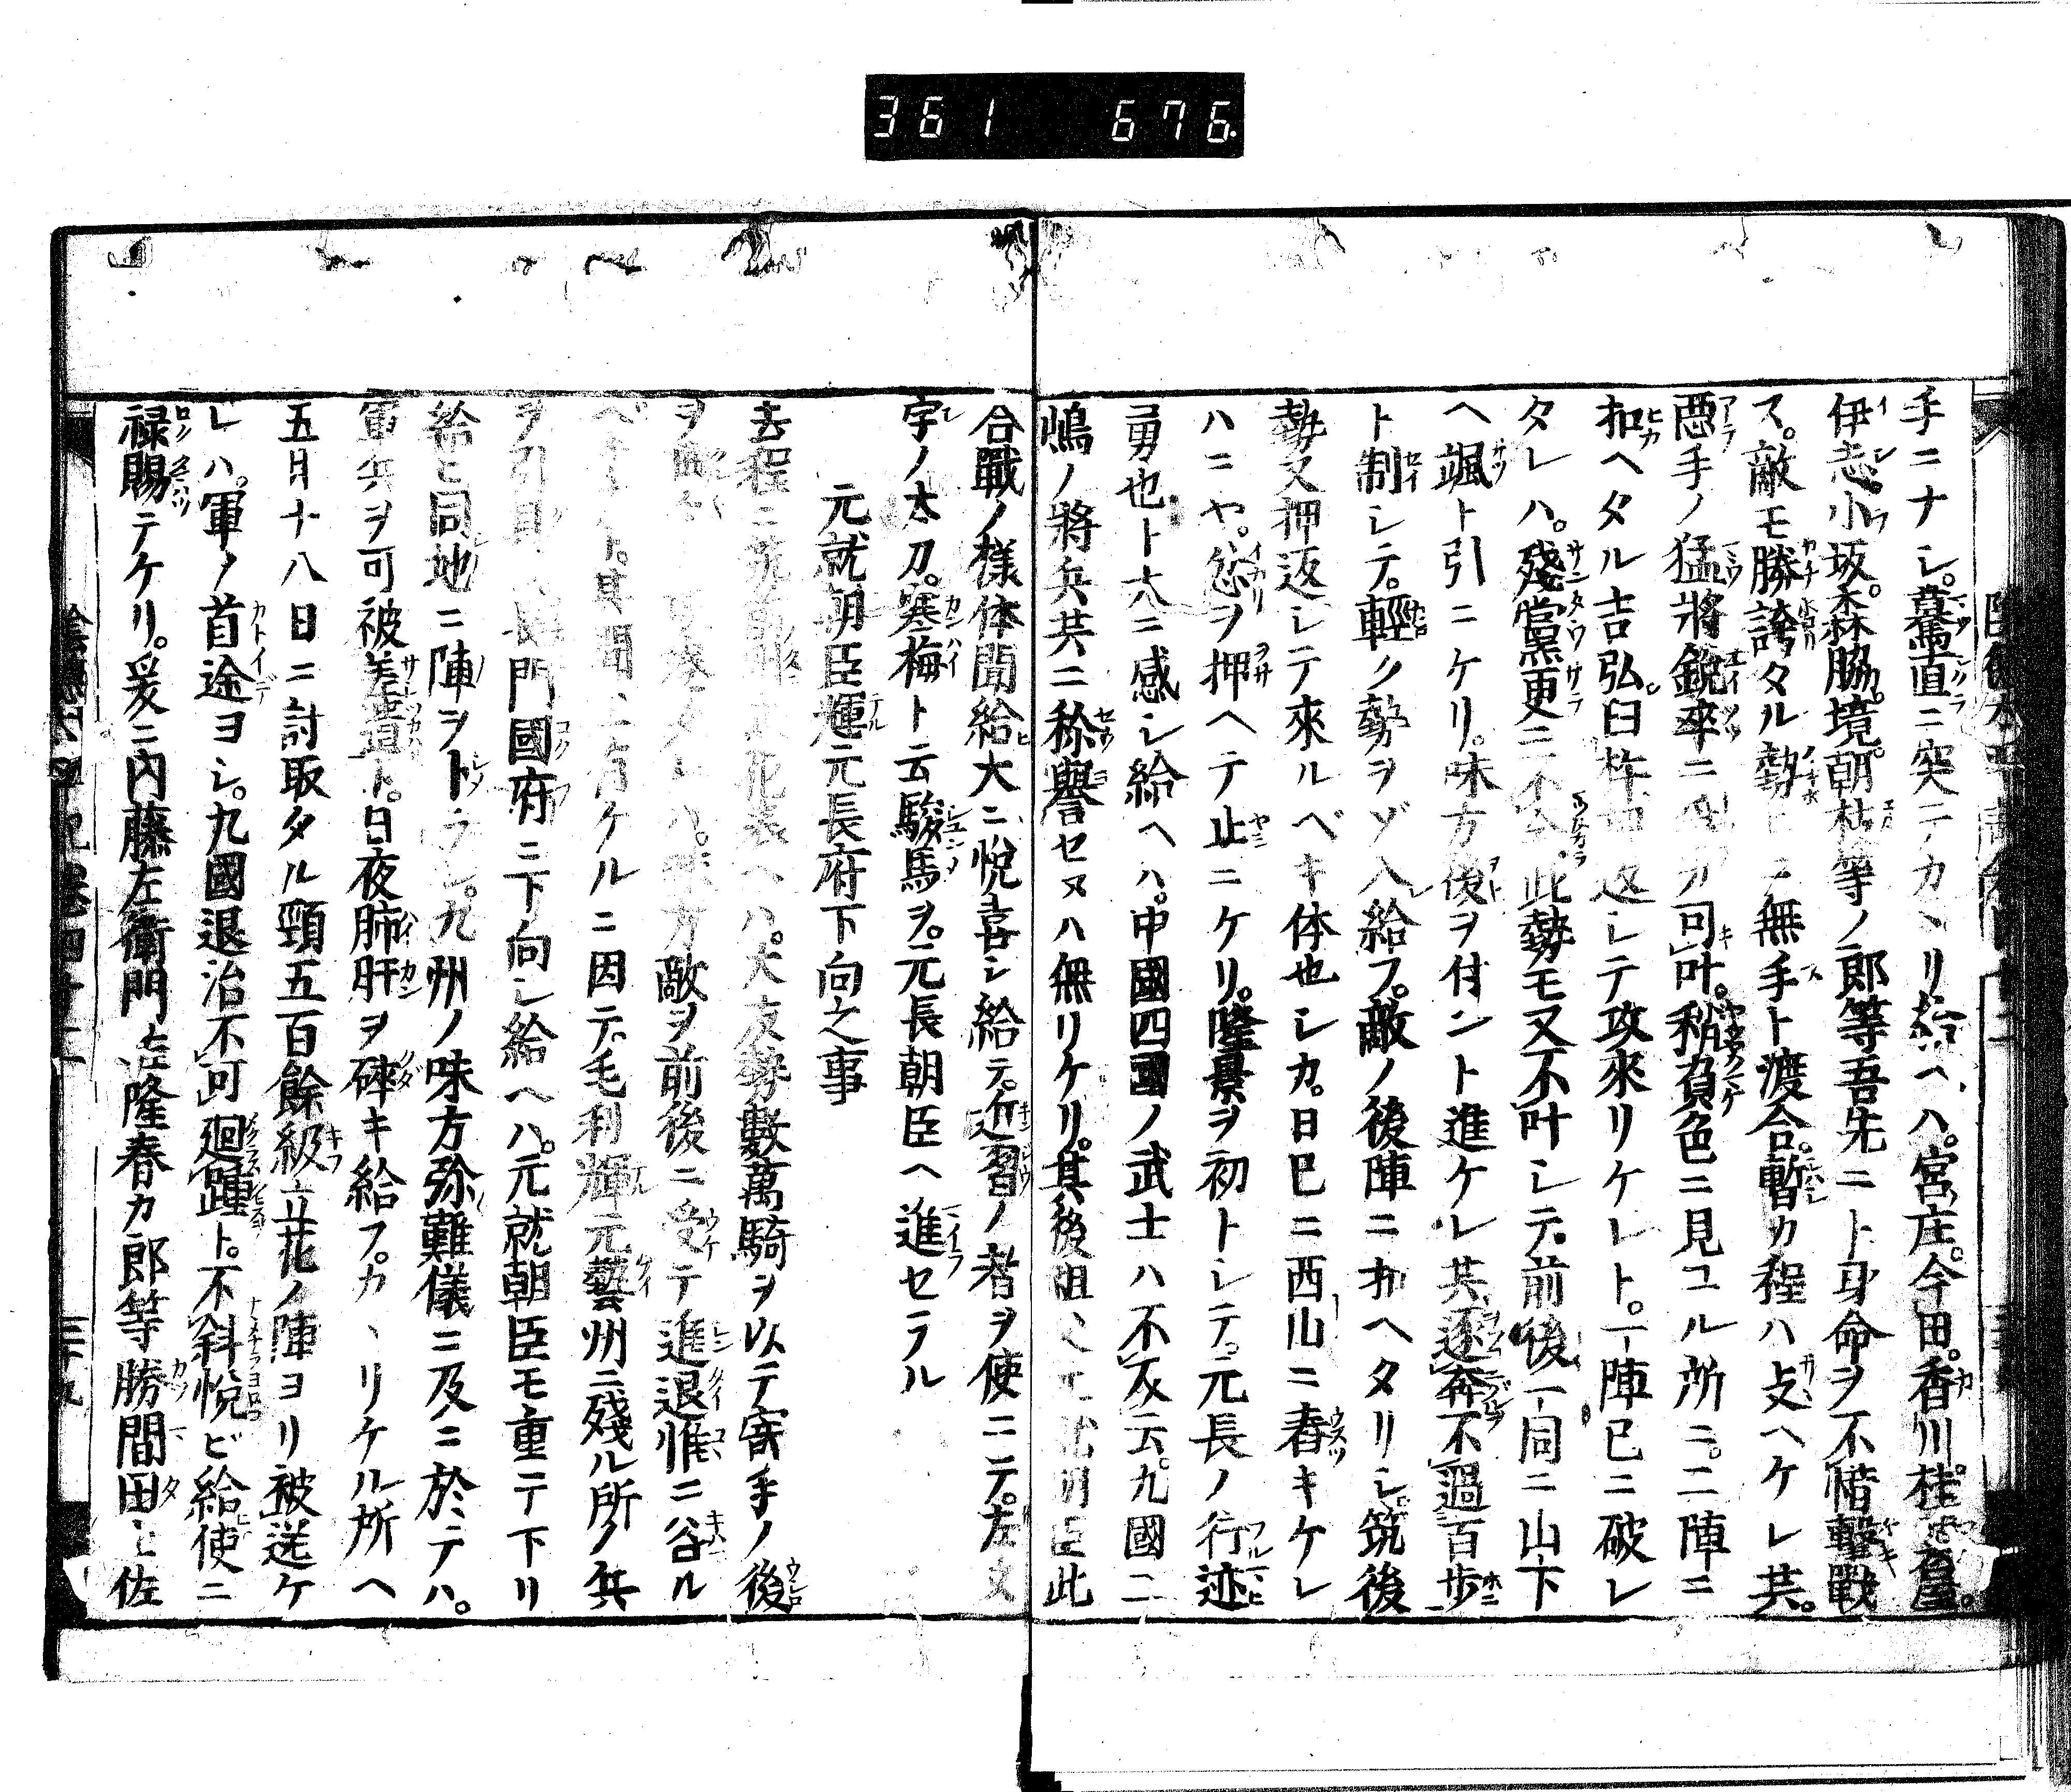 361 676.
手ニナシ。驀直ニ突テカヽリ給ヘハ。宮庄。今田。香川。桂。
伊志。小坂。森脇。境。朝枝等ノ郎等吾先ニト身命ヲ不惜撃戰
ス。敵モ勝誇タル勢ヒニテ無手ト渡合。暫カ程ハ支ヘケレ共。
惡手ノ猛將鋭卒ニ可叶。稍負色ニ見ユル所ニ。二陣ニ
扣ヘタル吉弘。臼杵返シテ攻來リケレト。一陣已ニ破レ
タレハ。殘黨更ニ不全。此勢モ又不叶シテ。前後一同ニ山下
ヘ颯ト引ニケリ。味方後ヲ付ント進ケレ共。逐奔不過百歩
ト制シテ。輕ク勢ヲゾ入給フ。敵ノ後陣ニ扣ヘタリシ。筑後
勢又押返シテ來ルベキ体也シカ。日已ニ西山ニ舂キケレ
ハニヤ。怒ヲ押ヘテ止ニケリ。隆景ヲ初トシテ。元長ノ行迹
勇也ト大ニ感シ給ヘハ。中國四國ノ武士ハ不及云。九國二
嶋ノ將兵共ニ称譽セヌハ無リケリ。其後祖父元就朝臣此
合戰ノ様体聞給大ニ悦喜シ給テ。近習ノ者ヲ使ニテ。左文
字ノ太刀。寒梅ト云駿馬ヲ。元長朝臣ヘ進セラル
元就朝臣輝元長府下向之事
去程ニ筑前立花表ヘハ。大友勢數萬騎ヲ以テ寄手ノ後
ヲ味方敵ヲ前後ニ受テ進退惟ニ谷ル
ベキト。其聞ヘ有ケルニ因テ。毛利輝元藝州ニ殘ル所ノ兵
ヲ引具シ長門國府ニ下向シ給ヘハ。元就朝臣モ重テ下リ
給ヒ同地ニ陣ヲトラル。九州ノ味方弥難儀ニ及ニ於テハ。
軍兵ヲ可被差遣ト。日夜肺肝ヲ碎キ給フ。カヽリケル所ヘ
五月十八日ニ討取タル頸五百餘級立花ノ陣ヨリ被送ケ
レハ。軍ノ首途ヨシ。九國退治不可廻踵ト。不斜悦ビ給使ニ
禄賜テケリ。爰ニ内藤左衛門佐隆春カ郎等勝間田土佐